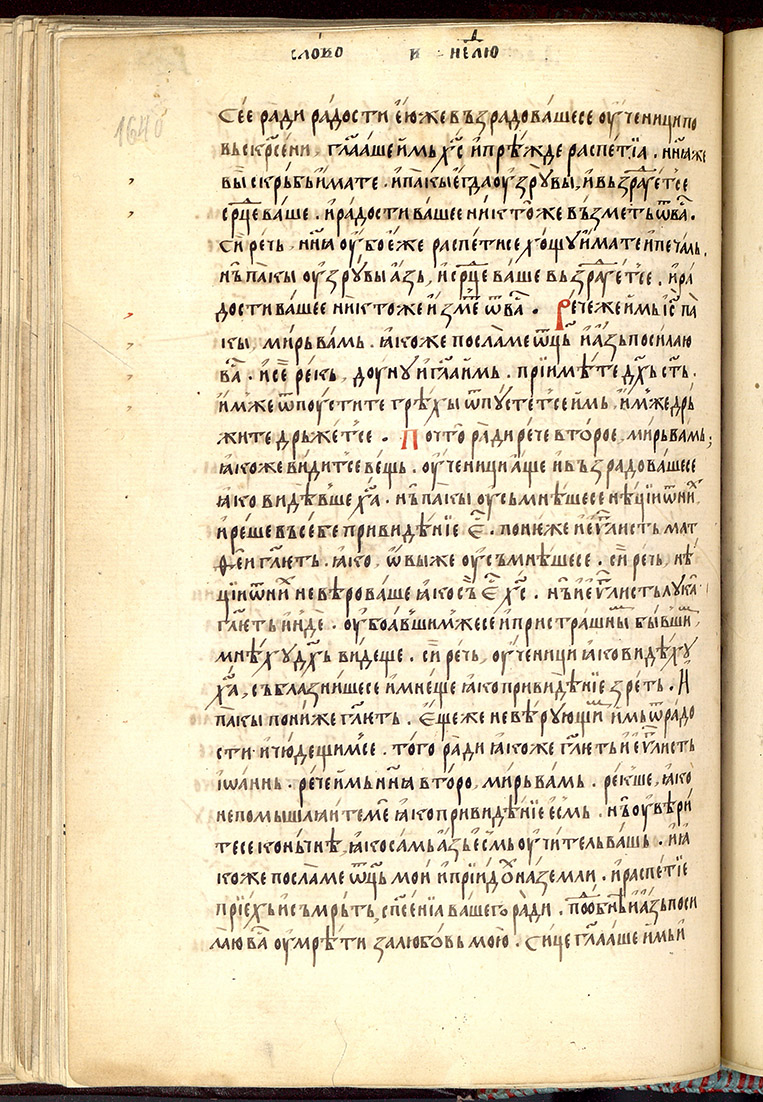 сло́во в҃ не́лю
1640
Сее́ ра́ди ра́дости е́юже въз̾радова́шесе оу҆ченици по
въскр҃се́ни, гл҃а́аше и҆мь х҃с и҆ прѣ́жде распе́тїа . нн҃ꙗ же
вы̀ скръ́бь и҆мате . и҆ па́кы е҆гда̀ оу҆з̾рꙋ̀ вы̀, и҆ въз̾ра́дꙋетсе
ср҃це ва́ше . и҆ ра́дости ва́шее никто́же въ́зметь ѿ ва́ .
Си́ рѣчь, нн҃ꙗ оу҆бо е҆́же распе́тисе хо́щꙋ и҆мате и҆ печа́ль,
нь̀ па́кы оу҆з̾рꙋ̀ вы̀ а҆зь, и҆ ср҃це ва́ше въз̾ра́дꙋетсе . и҆ ра́
дости ва́шее никто́же и҆́змет ѿ ва́ . Рече́ же и҆мь і҆с҃ па́
кы, ми́рь ва́мь . ꙗ҆коже посла́ ме ѿц҃ь и҆ а҆зь посилаю
ва́ . и҆ се́ рекь, дꙋнꙋ и҆ гл҃а и҆мь . прїимѣ́те дх҃ь ст҃ь .
и҆мже ѿпꙋстите грѣ́хы ѿпꙋстетсе и҆мь, и҆мже дрь
жите дрьже́тсе . Почто̀ ра́ди рече второ́е, ми́рь ва́мь;
ꙗ҆коже ви́дитсе ве́щь . оу҆ченици а҆́ще и҆ въз̾радова́шесе
ꙗ҆ко ви́дѣвше х҃а . нь̀ па́кы оу҆сьмнѣ́шесе нѣ́цїи ѿ ни́х
и҆ рѣше вь се́бе привидѣ́нїе е҆с . поне́же и҆ е҆ѵ҃листь мат
ѳе́и гл҃еть . ꙗ҆ко, ѡ҆вы же оу҆съмнѣ́шесе . си́ рѣчь, нѣ́
цїи ѿ ни́х не вѣ́роваше ꙗ҆ко съ̀ е҆с х҃с . нь̀ и҆ е҆ѵ҃листь лꙋка̀
гл҃еть и҆ндѐ . оу҆боа́вшимжесе и҆ пристра́шны бы́вши,
мнѣ́хꙋ дх҃ь ви́деще . си́ рѣчь, оу҆ченици ꙗ҆ко ви́дѣхꙋ
х҃а, съблаз̾ни́шесе и҆ мне́ще ꙗ҆ко привидѣ́нїе зрѣ́ть . И҆
па́кы пони́же гл҃еть . Е҆щеже не вѣ́рꙋющи и҆мь ѿ ра́до
сти и҆ чю́дещимсе . того̀ ра́ди ꙗ҆коже гл҃еть и҆ е҆ѵ҃листь
і҆ѡа́ннь . рече́ и҆мь нн҃ꙗ второ, ми́рь ва́мь . ре́кше, ꙗ҆ко̀
не помы́шлꙗите мѐ ꙗ҆ко привидѣ́нїе е҆смь . нь̀ оу҆вѣри
тесе коньчнѣ́, ꙗ҆ко са́мь а҆зь е҆смь оу҆чи́тель ва́шь . и҆ ꙗ҆
коже посла́ ме ѿц҃ь мои́ и҆ прїидо́х на землѝ . и҆ распе́тїе
прїе́хь и҆ съмрь́ть, спсе́нїа ва́шего ра́ди . подо́бнѣ и҆ а҆зь поси
лаю ва́ оу҆мрѣ́ти за любо́вь мою̀ . Си́це гл҃а́аше и҆мь и҆